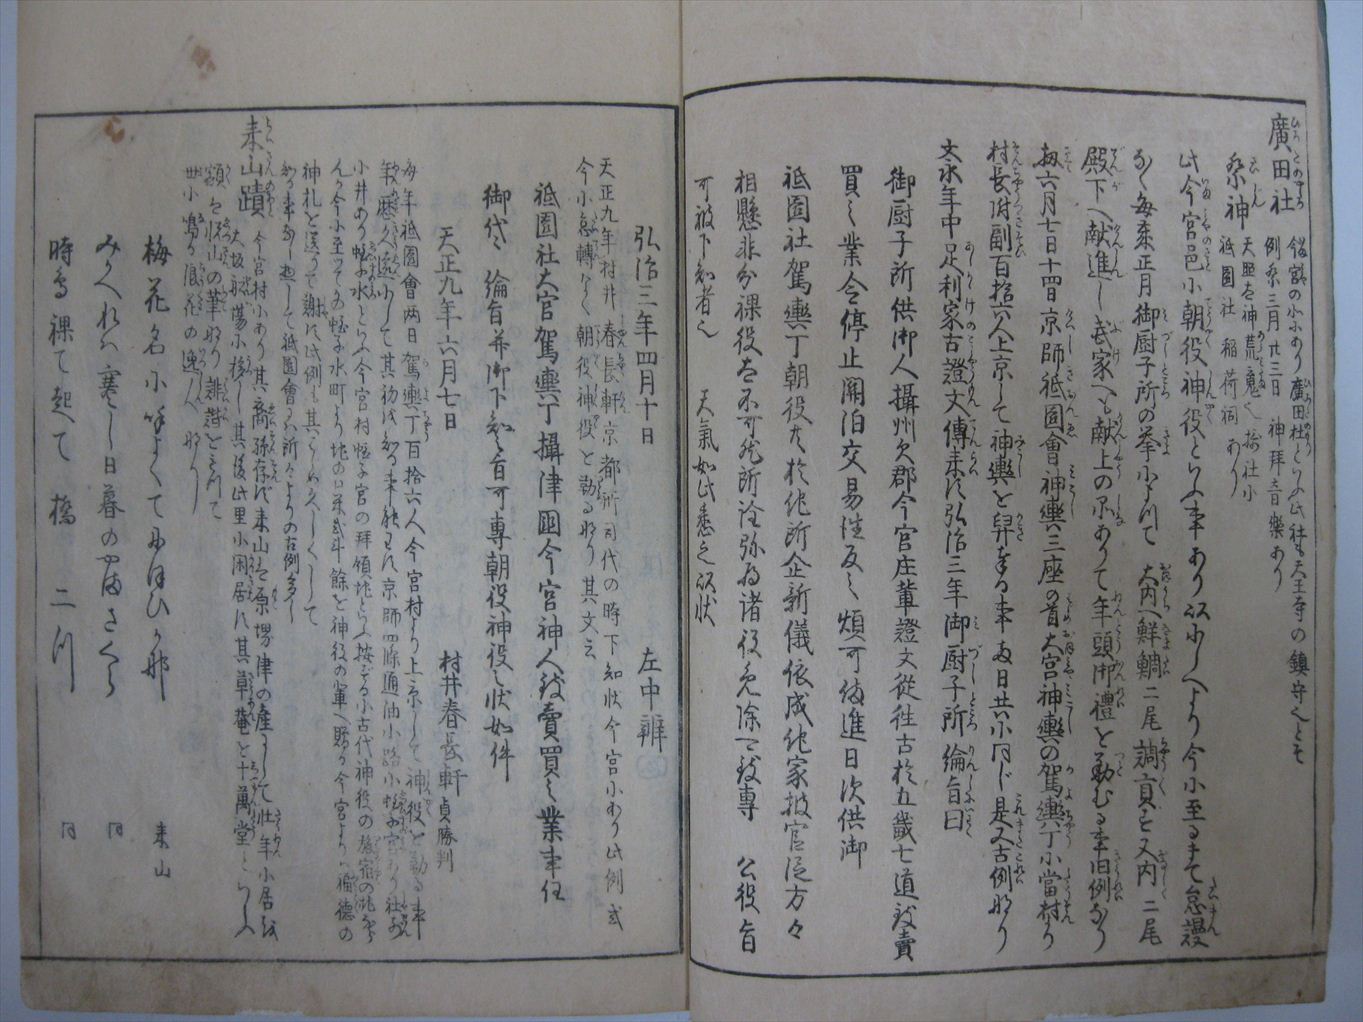 廣田社
今宮の小にあり廣田杜といふ此社も天王寺の鎮守也とそ
例祭三月廿三日神拜音樂あり
祭神
天照太神荒魂也摂社に
祗園社稲荷祠あり
此今宮邑に朝役神役といふ事あり以にしへより今に至るまて怠謾
なく毎春正月御厨子所の挙によつて大内へ鮮鯛二尾調貢を又内二尾
殿下へ献進し武家へも献上の品ありて年頭御禮を勤むる事旧例なり
扨六月七日十四日京師祗園會神輿三座の首大宮神輿の駕輿丁に當村ゟ
村長附副百拾六人上京して神輿を舁奉る事両日共に同じ是又古例なり
文永年中足利家古證文傳来す弘治三年御厨子所綸旨曰
御厨子所供御人攝州欠郡今宮庄輩證文從往古於五畿七道致賣
買之業令停止關泊交易往反之煩可備進日次供御
祗園社駕輿丁朝役等於他所企新儀依成他家被官従方々
相懸非分課役太不可然所詮弥為諸役免除可致專公役旨
可被下知者也　天氣如此悉之以状
弘治三年四月十日　左中辨
天正九年村井春長軒京都所司代の時下知状今宮にあり此例式
今に怠轉なく朝役神役を勤るなり其文云
祗園社大宮駕輿丁攝津國今宮神人致賣買之業事任
御代々綸旨并御下知之旨可專朝役神役之状如件
天正九年六月七日　村井春長軒貞勝判
毎年祗園會両日駕輿丁百拾六人今宮村より上京して神役を勤る事
数歴久遠にして其初は知る事能はす京師四條通油小路に蛭子宮あり社前
に井あり蛭子水といふ今宮村蛭子宮の拜領地といふ按ずるに古代神役の旅宿の地ならん
んか今に至つてゐ蛭子水町より地口米弐斗餘を神役の軍へ贈る今宮より福德の
神札を送つて謝す此例も其はじめ久しくして
知る事なし惣して祗園會には所々よりの古例多し
来山蹟
今宮村にあり其裔孫存す来山は原堺津の産にして壮年に居を
大坂船場に移し其後此里に閑居す其草菴を十萬堂といふ
額は悦山の筆なり誹諧をもつて
世に鳴る浪花の逸人なり
梅花名に咲よくてにほひかな　来山
みかへれは寒し日暮の山さくら　同
時鳥裸て起て橋二つ　同